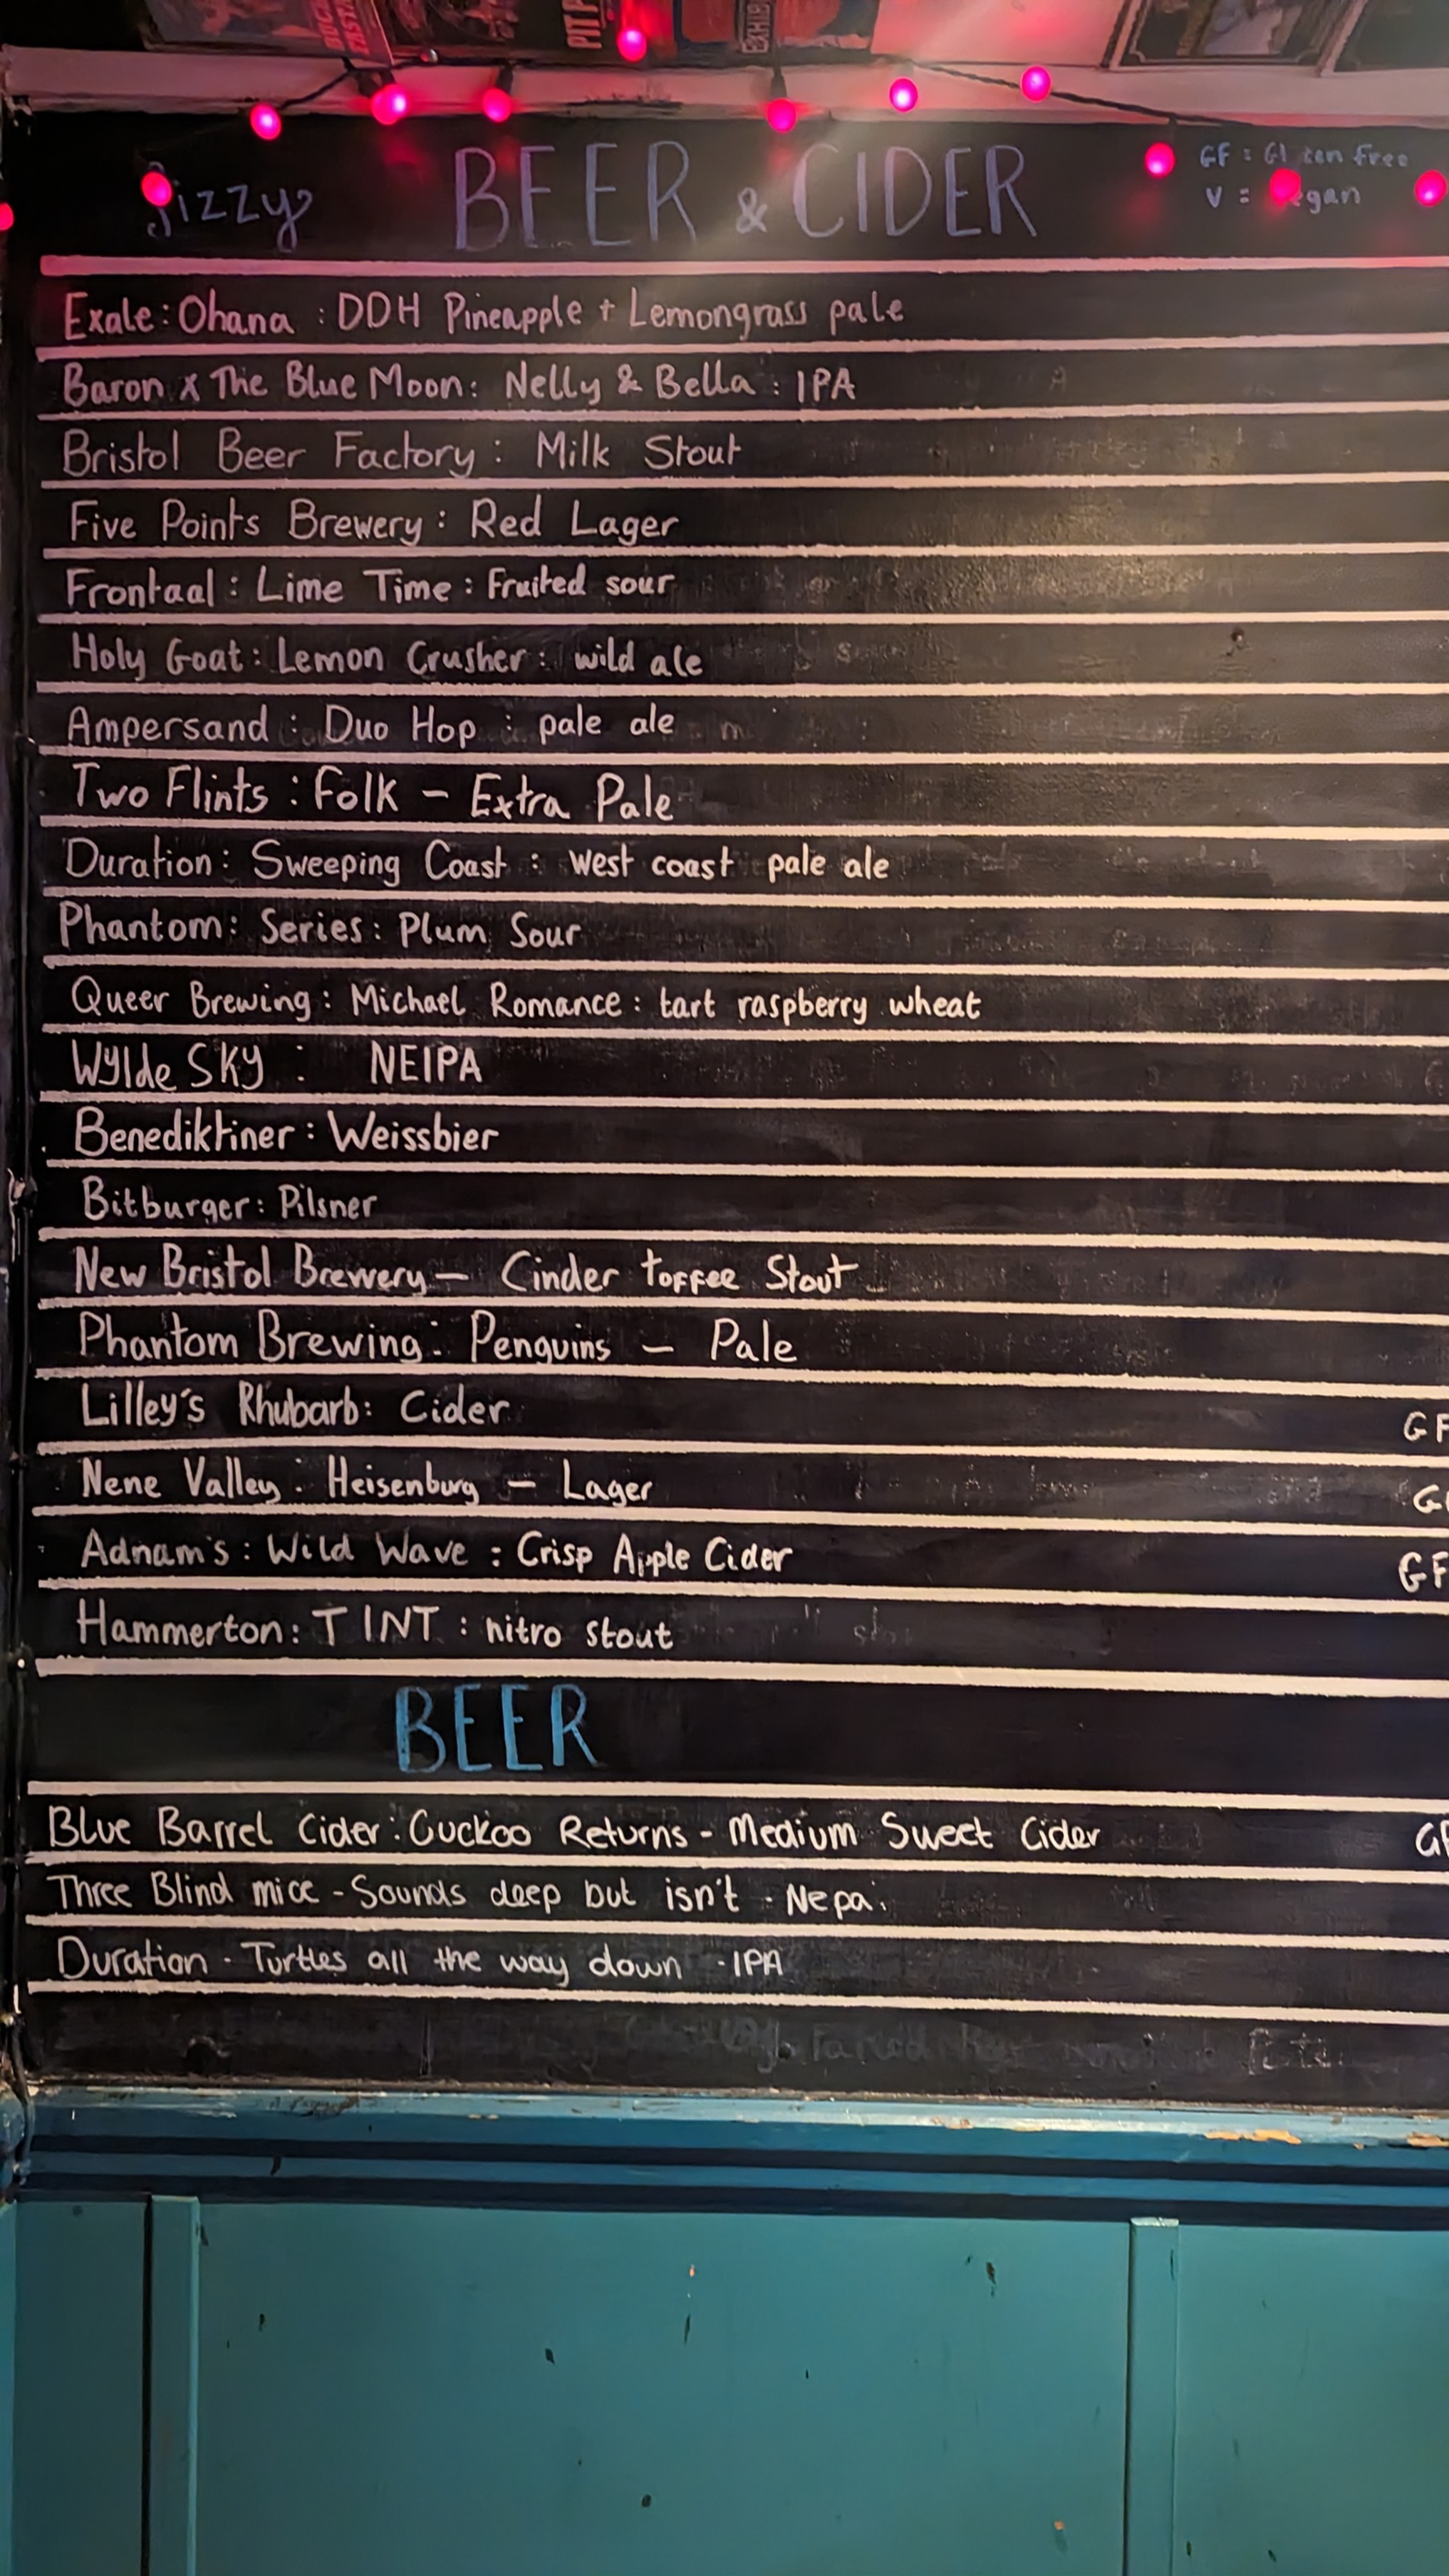 BEER & CIDER
GF :
V =
Exale : Ohana : DDH Pineapple + Lemongrass pale
Baron x The Blue Moon : Nelly & Bella : IPA
Bristol Beer Factory : Milk Stout
Five Points Brewery : Red Lager
Frontaal : Lime Time : Fruited sour
Holy Goat : Lemon Crusher : wild ale
Ampersand : Duo Hop : pale ale
Two Flints : Folk - Extra Pale
Duration : Sweeping Coast : west coast pale ale
Phantom : Series : Plum Sour
Queer Brewing : Michael Romance : tart raspberry wheat
Wylde SKY : NEIPA
Benediktiner : Weissbier
Bitburger : Pilsner
New Bristol Brewery - Cinder toffee Stout
Phantom Brewing : Penguins - Pale
Lilley's Rhubarb : Cider GF
Nene Valley : Heisenburg - Lager
Adnam's : Wild Wave : Crisp Apple Cider GF
Hammerton : T INT : nitro stout
BEER
Blue Barrel Cider : Cuckoo Returns - Medium Sweet Cider
Three Blind mice - Sounds deep but isn't - Nepa
Duration - Turtles all the way down - IPA